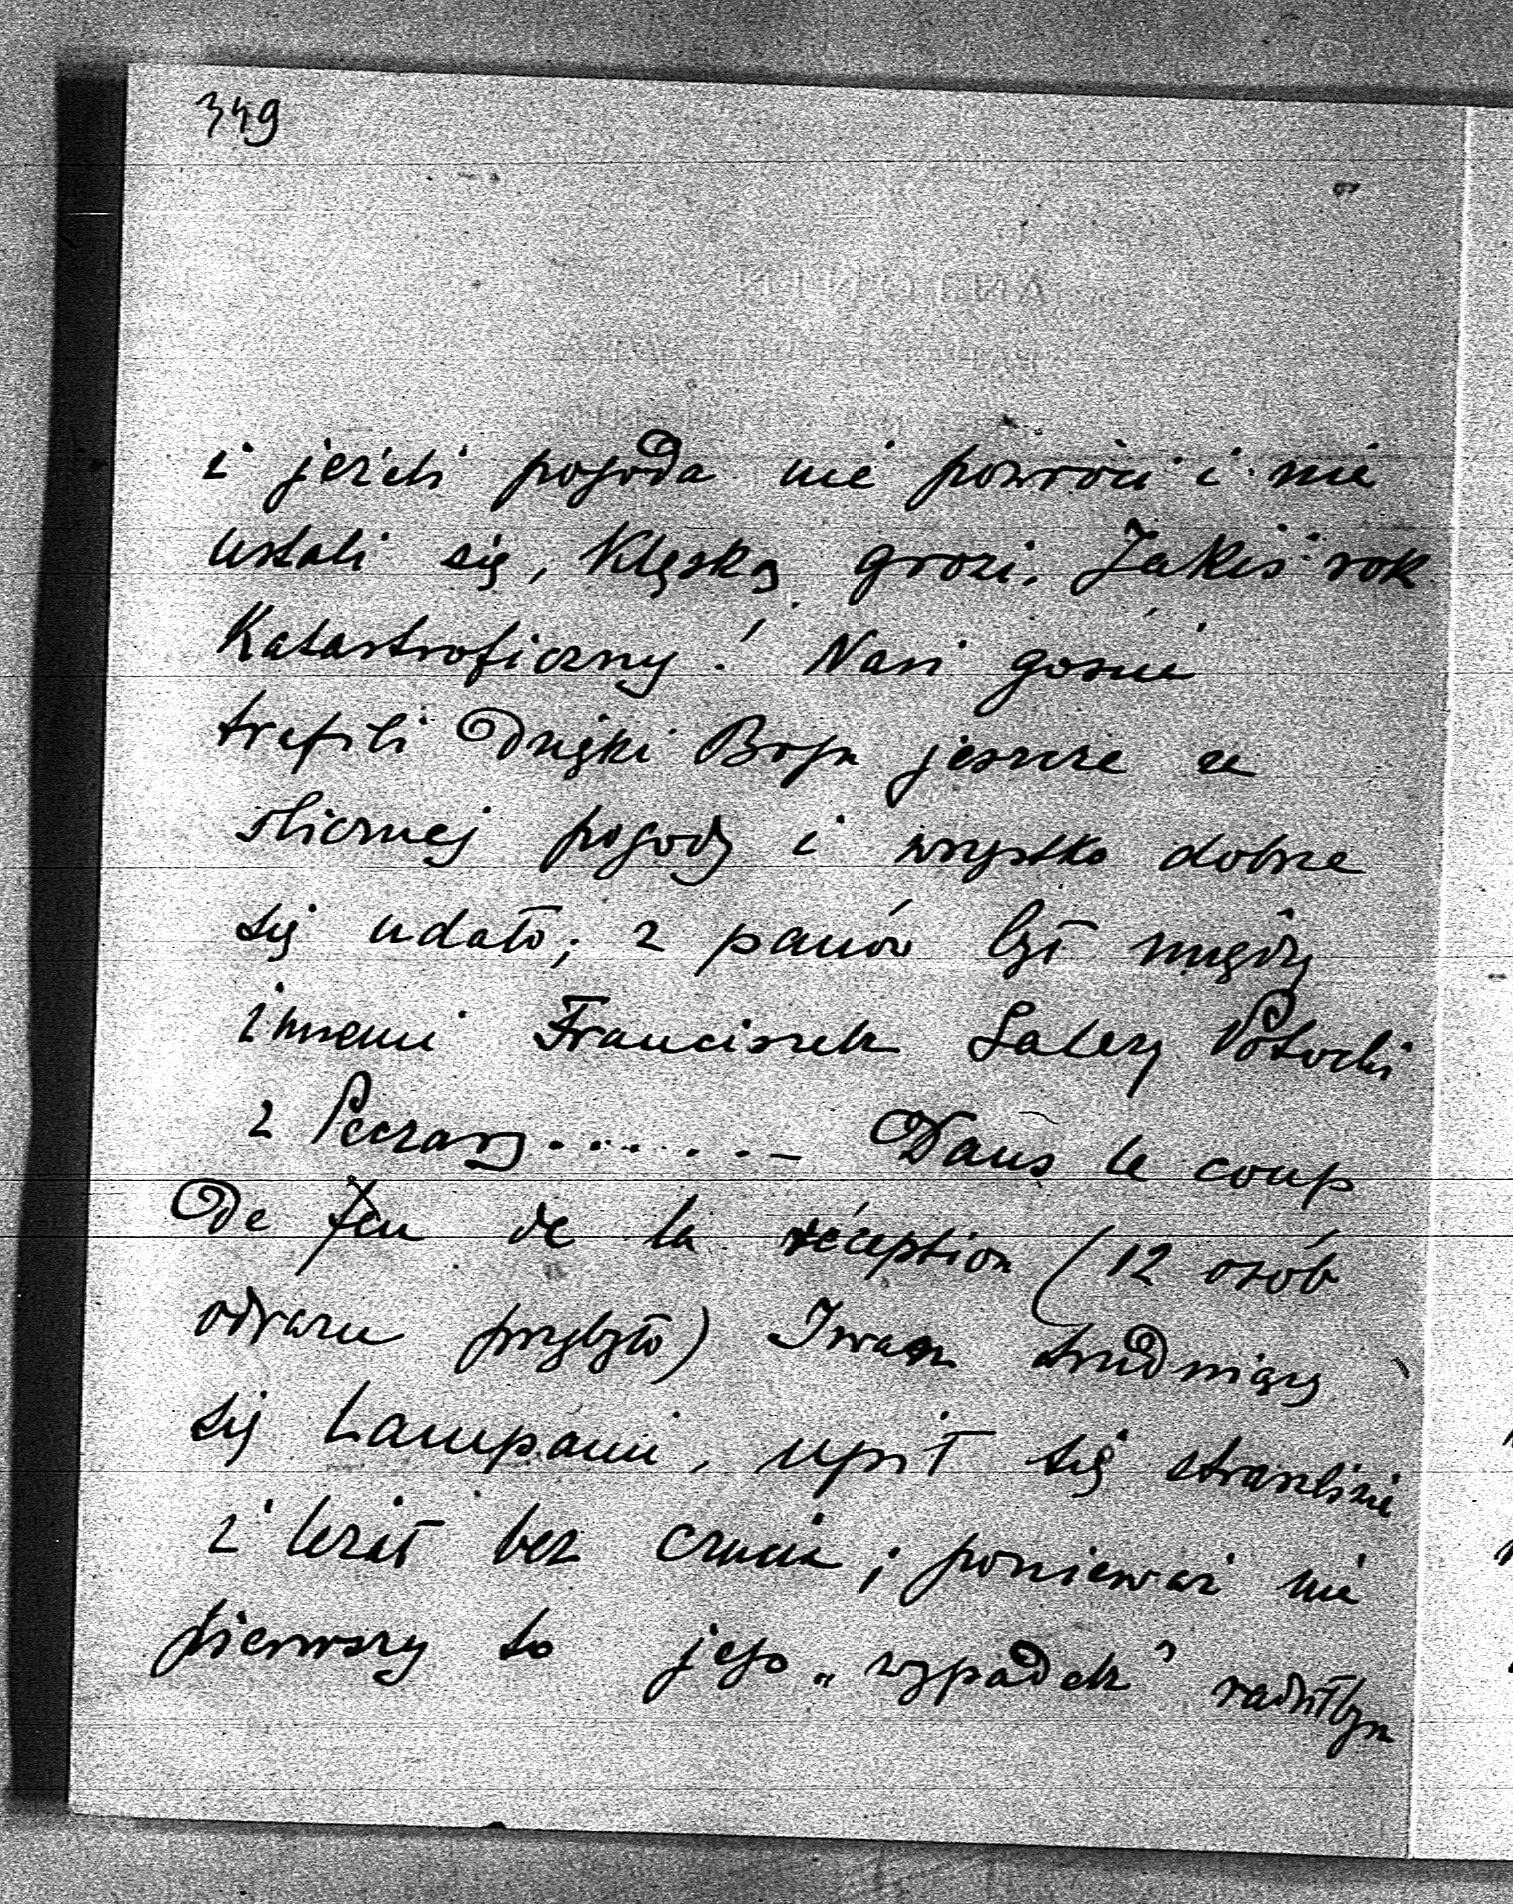 349
i jeżeli pogoda nie powróci i nie
ustali się, klęską grozi. Jakiś rok
katastroficzny! Nasi goście
trafili dzięki Bogu jeszcze na
ślicznej pogody i wszystko dobrze
się udało; z panów był między
innemi Franciszek Salezy Potocki
z Peczary....... Dans le coup
de feu de la réception (12 osób
odrazu przybyło) Iwan trudniący
się lampami, upił się straszliwie
i leżał bez czucia; ponieważ nie
pierwszy to jego „wypadek” radziłbym